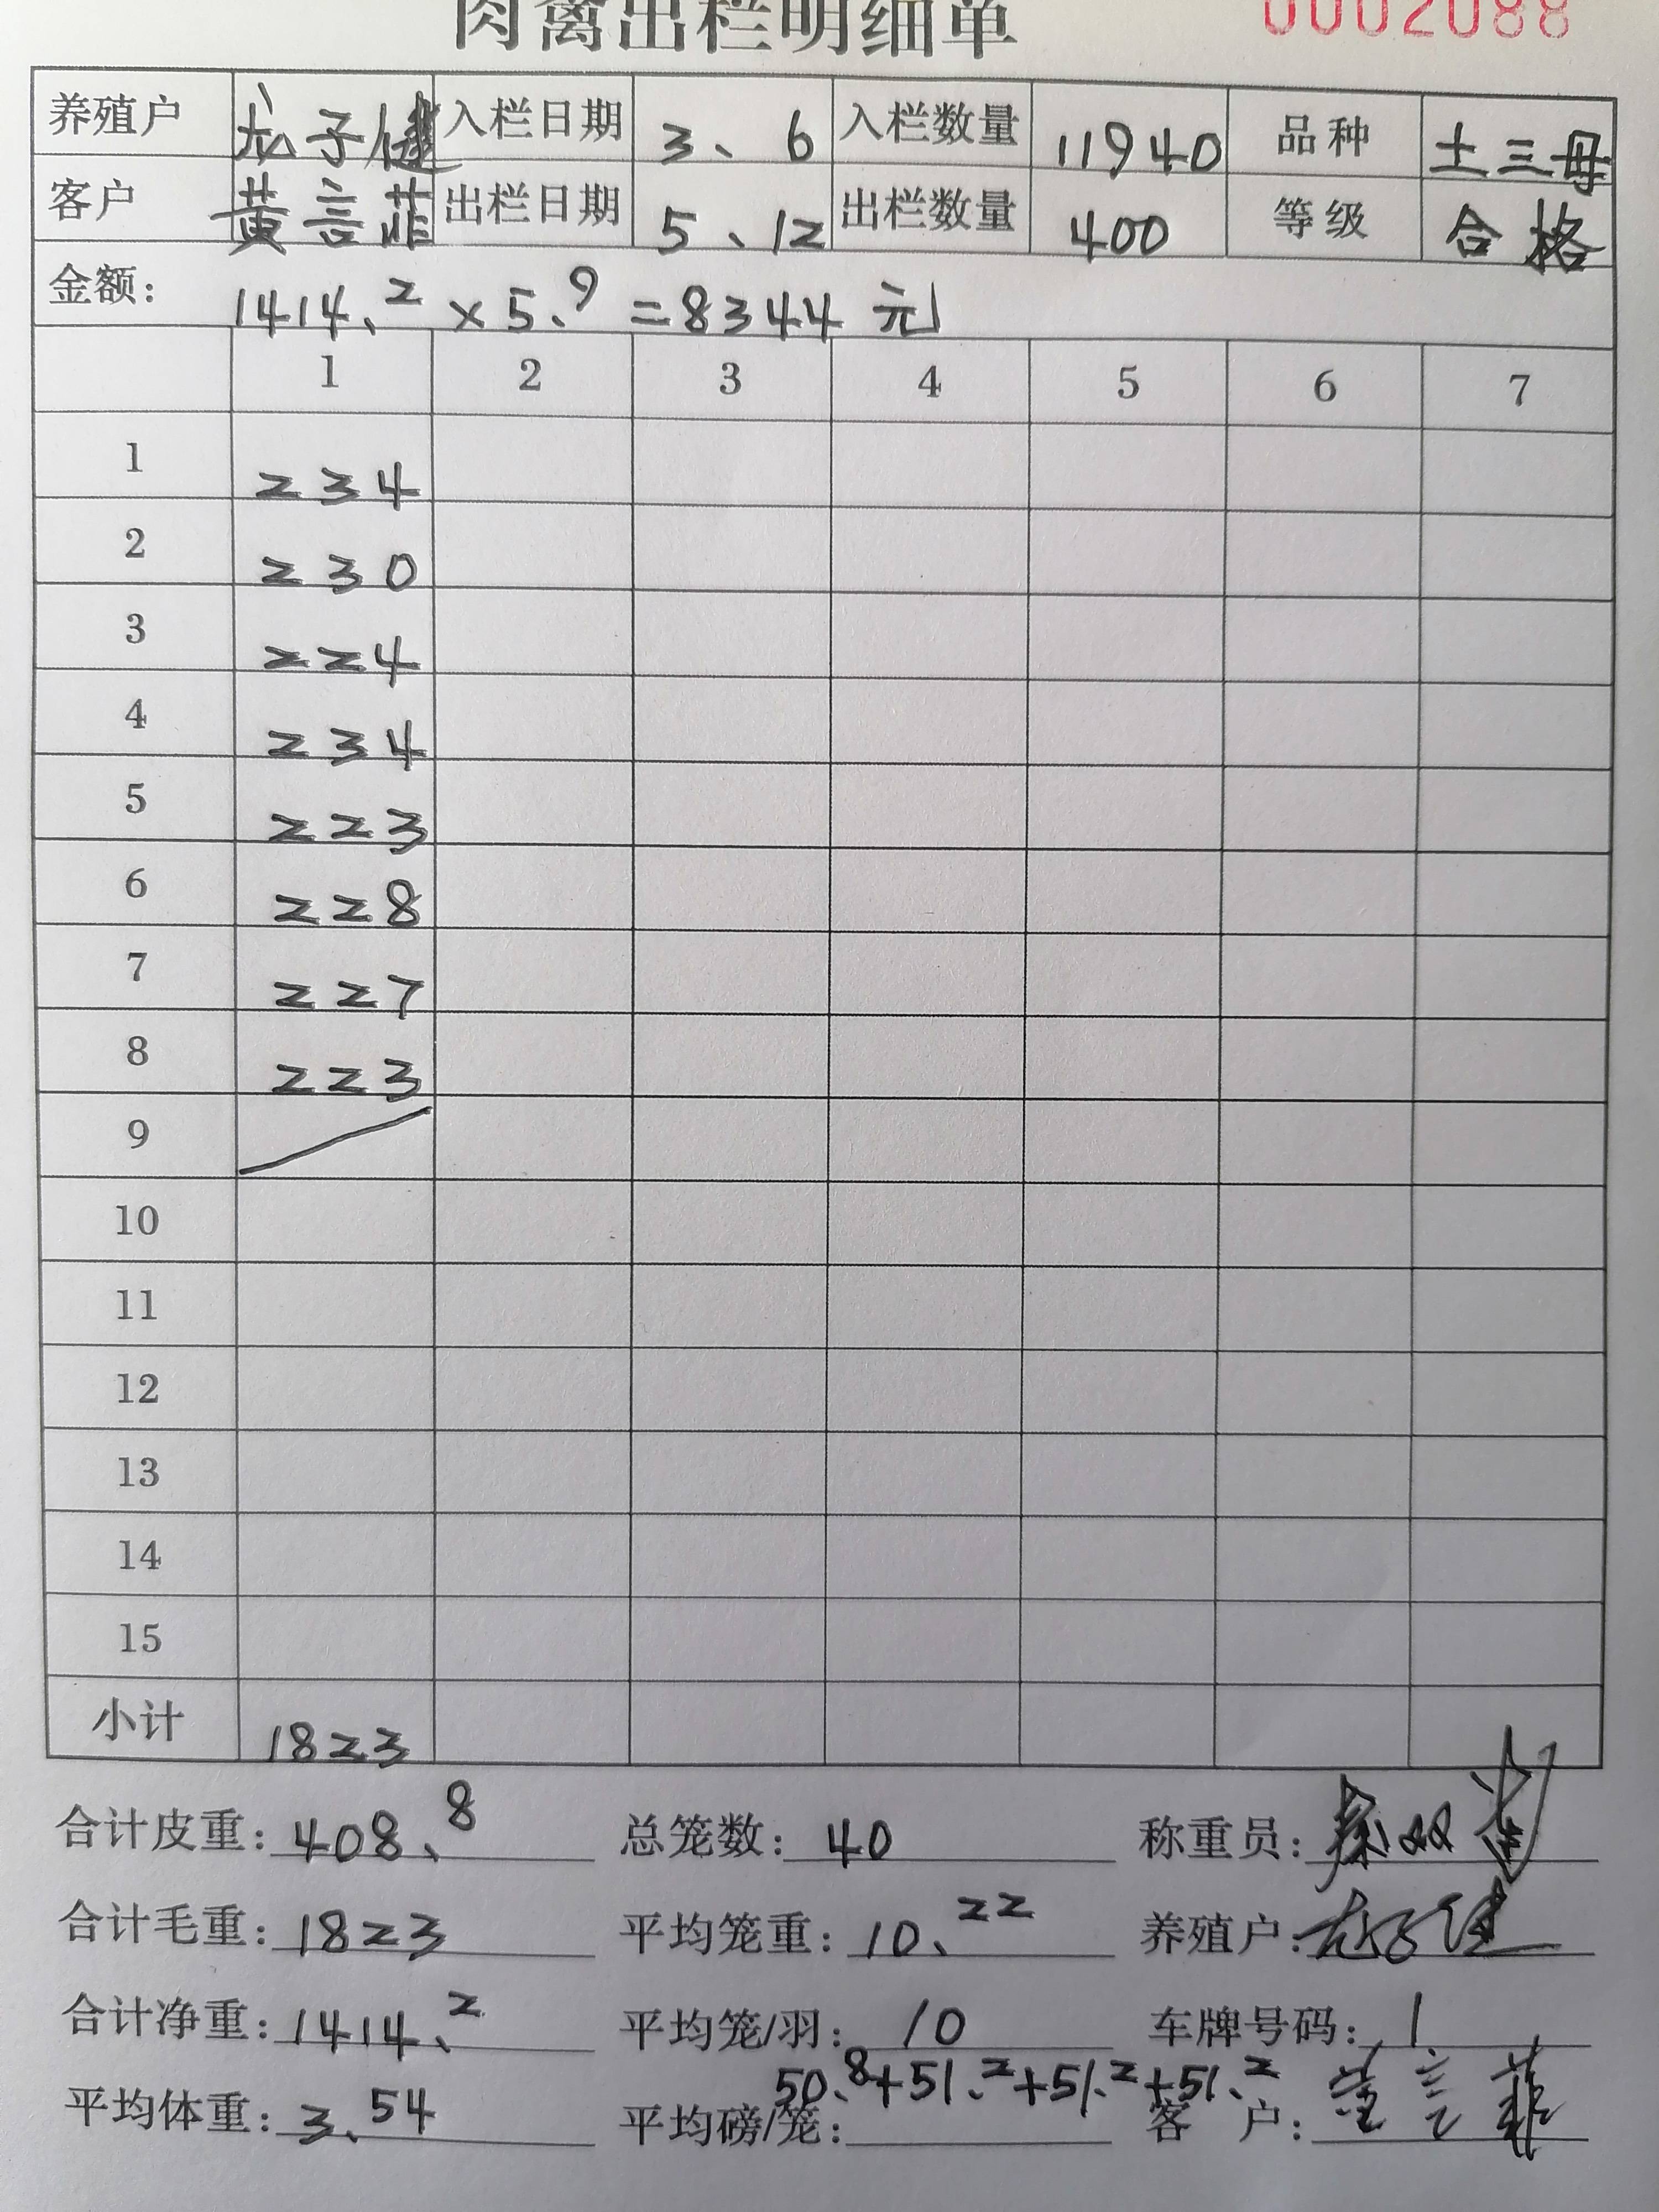 肉禽出栏明细单 0002088
养殖户 龙子健 入栏日期 3、6 入栏数量 11940 品种 土三母
客户 黄言菲 出栏日期 5、12 出栏数量 400 等级 合格
金额: 1414、2 × 5、9 = 8344 元
1 2 3 4 5 6 7
1 234
2 230
3 224
4 234
5 223
6 228
7 227
8 223
9
10
11
12
13
14
15
小计 1823
合计皮重: 408、8 总笼数: 40 称重员:
合计毛重: 1823 平均笼重: 10、22 养殖户: 龙子健
合计净重: 1414、2 平均笼/羽: 10 车牌号码: 1
50、8+51、2+51、2+51、2
平均体重: 3、54 平均磅/笼: 客户: 黄言菲